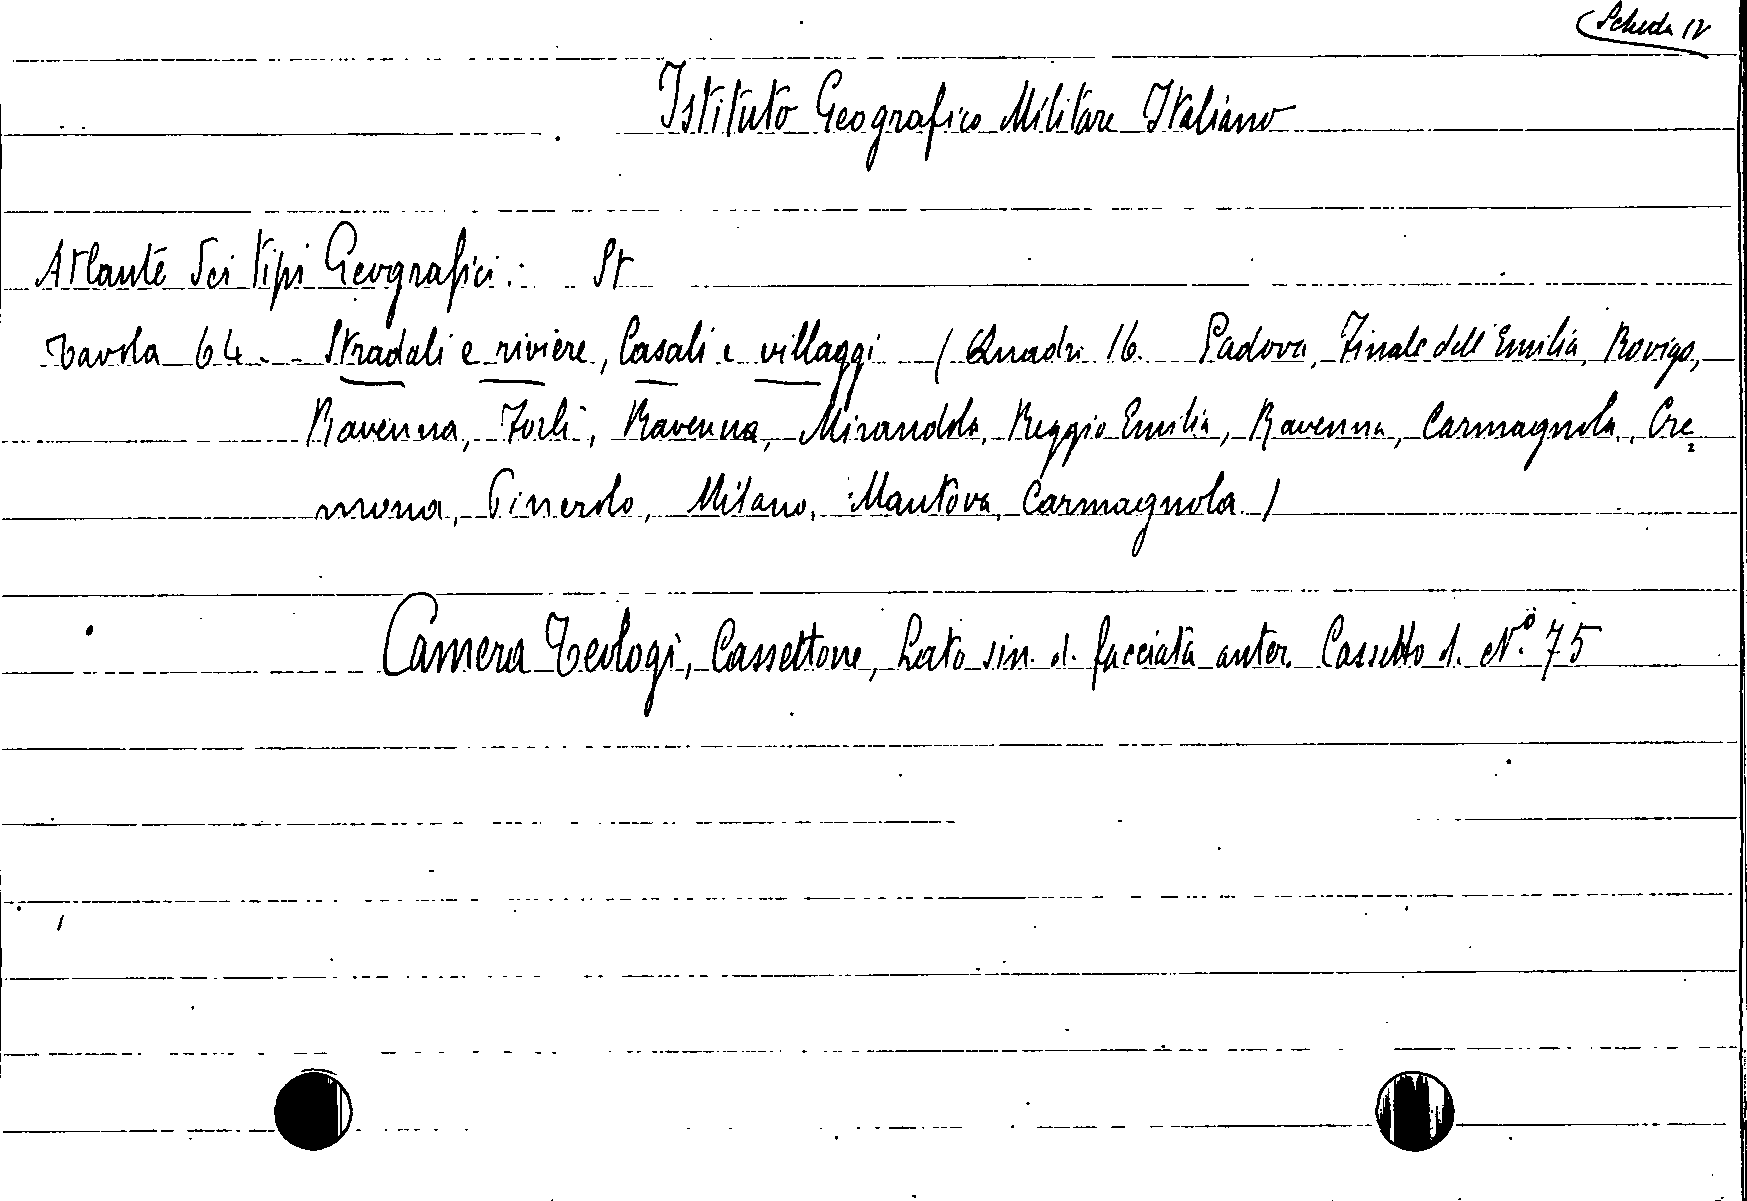 Scheda IV
Istituto Geografico Militare Italiano
Atlante dei tipi Geografici: St
Tavola 64. - Stradali e riviere, Casali e villaggi ( Quadri 16. Padova, Finale dell'Emilia, Rovigo,
Ravenna, Forlì, Ravenna, Mirandola, Reggio Emilia, Ravenna, Carmagnola, Cre
mona, Pinerolo, Milano, Mantova, Carmagnola )
Camera Teologi, Cassettone, Lato sin. d. facciata anter. Cassetto d. N.° 75